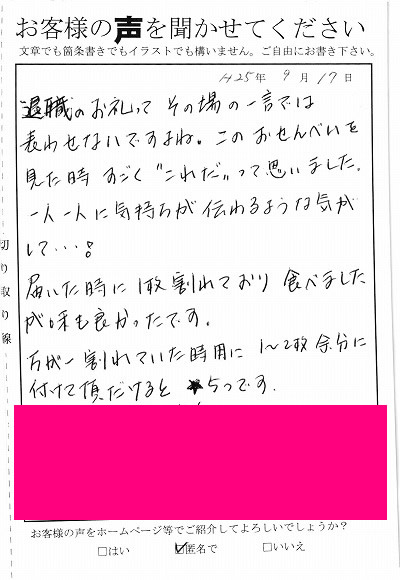 お客様の声を聞かせてください
文章でも箇条書きでもイラストでも構いません。ご自由にお書き下さい。
H25年 9月17日
退職のお礼って その場の一言では
表わせないですよね。このおせんべいを
見た時 すごく "これだ"って思いました。
一人一人に気持ちが伝わるような気が
して…!
届いた時に 1枚割れており 食べました
が味も良かったです。
万が一割れていた時用に 1〜2枚余分に
付けて頂だけると ★5つです.
切り取り線
お客様の声をホームページ等でご紹介してよろしいでしょうか?
□はい ☑匿名で □いいえ